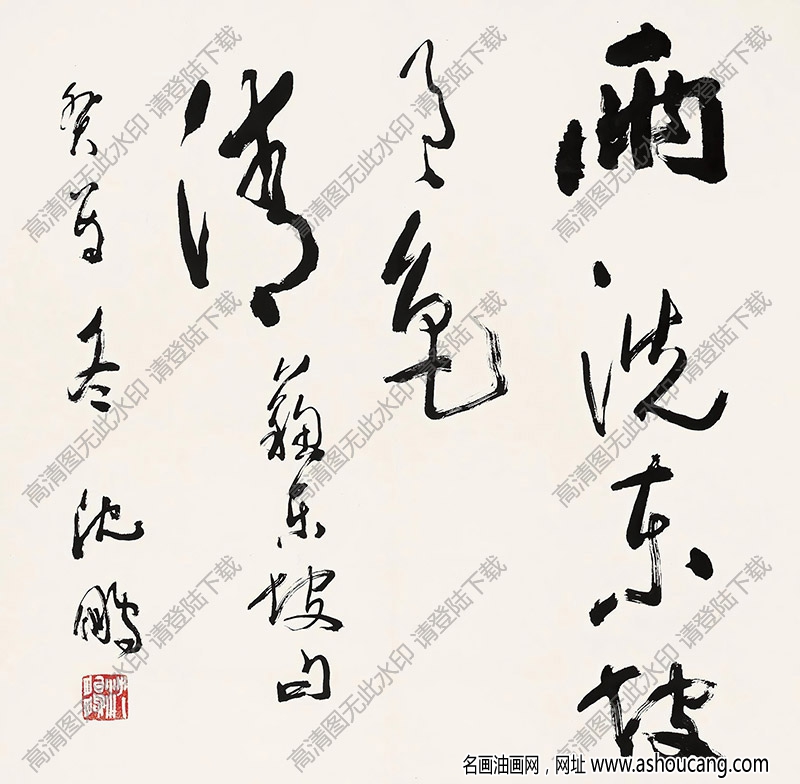 雨洗东坡
月色
清
蘇东坡句
癸
冬
沈鵬
高清图无此水印 请登陆下载
高清图无此水印 请登陆下载
高清图无此水印 请登陆下载
高清图无此水印 请登陆下载
高清图无此水印 请登陆下载
高清图无此水印 请登陆下载
高清图无此水印 请登陆下载
高清图无此水印 请登陆下载
高清图无此水印 请登陆下载
名画油画网，网址 www.ashoucang.com